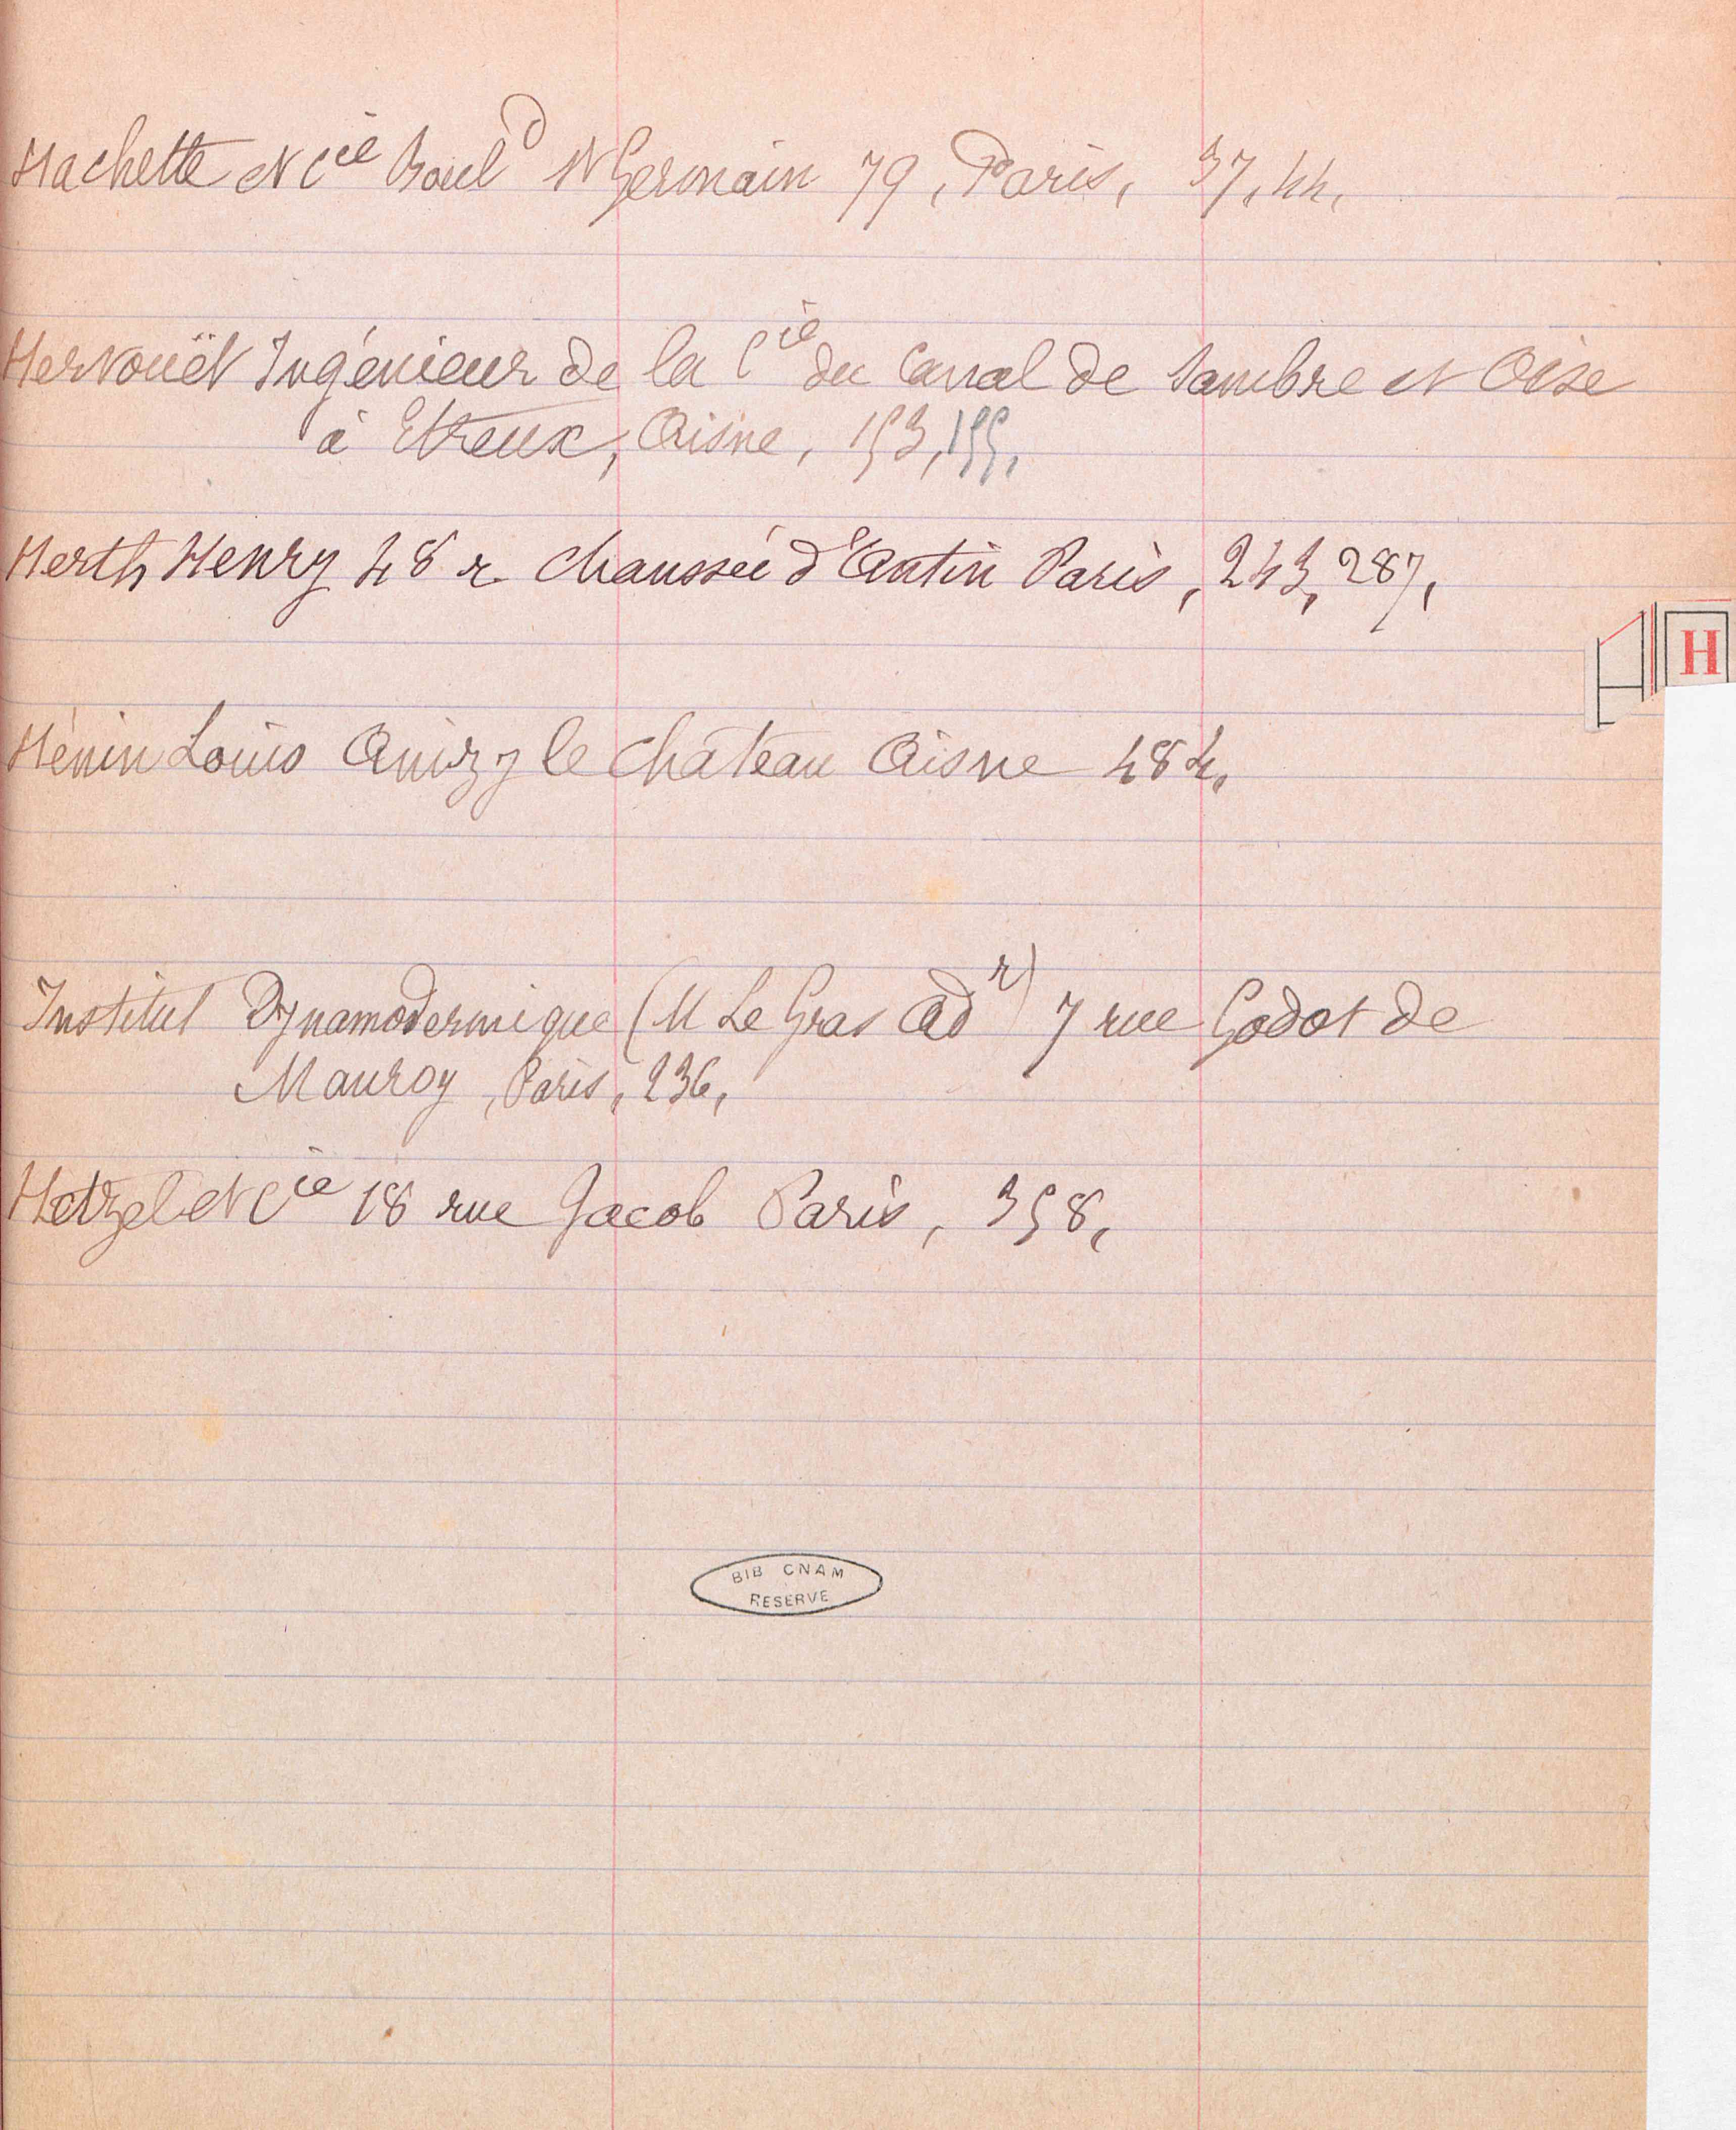 Hachette et Cie Bould St Germain 79, Paris, 37, 44,
Hervouët Ingénieur de la Cie du Canal de Sambre et Oise
à Etreux, Aisne, 153, 155,
Herth Henry 48 r Chaussée d'Antin Paris, 243, 287,
H
Hénin Louis Anizy le Château Aisne 484,
Institut Dynamodermique (M Le Gras adr) 7 rue Godot de
Mauroy, Paris, 236,
Hetzel et Cie 18 rue Jacob Paris, 358,
BIB CNAM
RESERVE